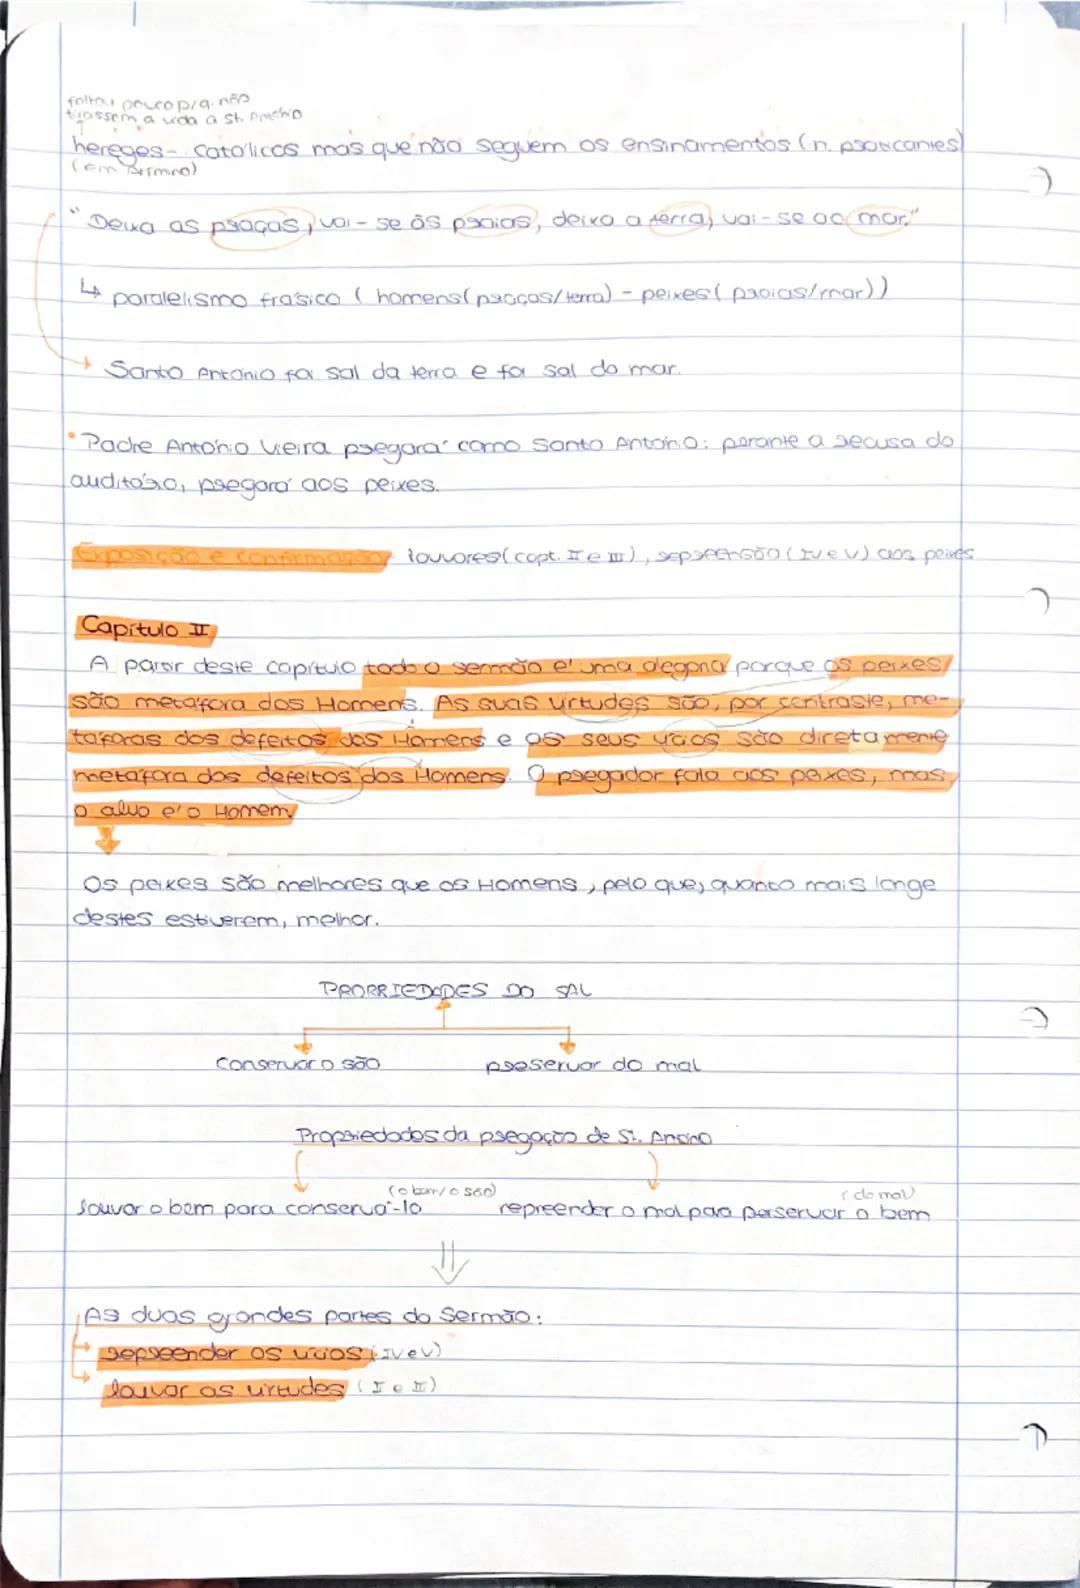 faltou pouco p/a. não
tirassem a vida a St. António
hereges - católicos mas que não seguem os ensinamentos (n. praticantes)
(em Arimino)
"Deixa as praças, vai-se às praias, deixa a terra, vai-se ao mar."
↳ paralelismo frásico (homens(praças/terra) - peixes(praias/mar))
Santo António foi sal da terra e foi sal do mar.
• Padre António Vieira pregará como Santo António: perante a recusa do
auditório, pregará aos peixes.
Exposição e confirmação louvores(capt. II e III), repreensão (IV e V) aos peixes
Capítulo II
A partir deste capítulo todo o sermão é uma alegoria porque os peixes
são metáfora dos Homens. As suas virtudes são, por contraste, me-
táforas dos defeitos dos Homens e os seus vícios são diretamente
metáfora dos defeitos dos Homens. O pregador fala aos peixes, mas
o alvo é o Homem
Os peixes são melhores que os Homens, pelo que, quanto mais longe
destes estiverem, melhor.
PROPRIEDADES DO SAL
conservar o são preservar do mal
Propriedades da pregação de St. António
(o bem/o são) (do mal)
louvar o bem para conservá-lo repreender o mal para perservar o bem
As duas grandes partes do Sermão:
repreender os vícios (IV e V)
louvar as virtudes (I e II)